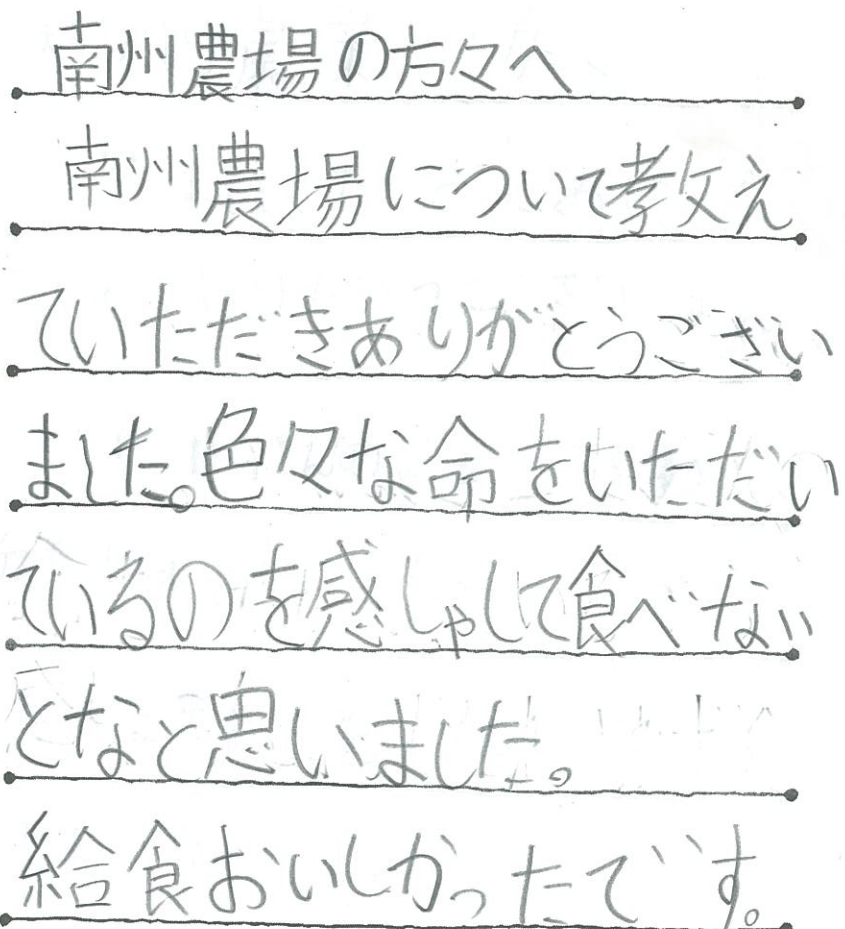 南州農場の方々へ
南州農場について教え
ていただきありがとうござい
ました。色々な命をいただい
ているのを感しゃして食べない
となと思いました。
給食おいしかったです。